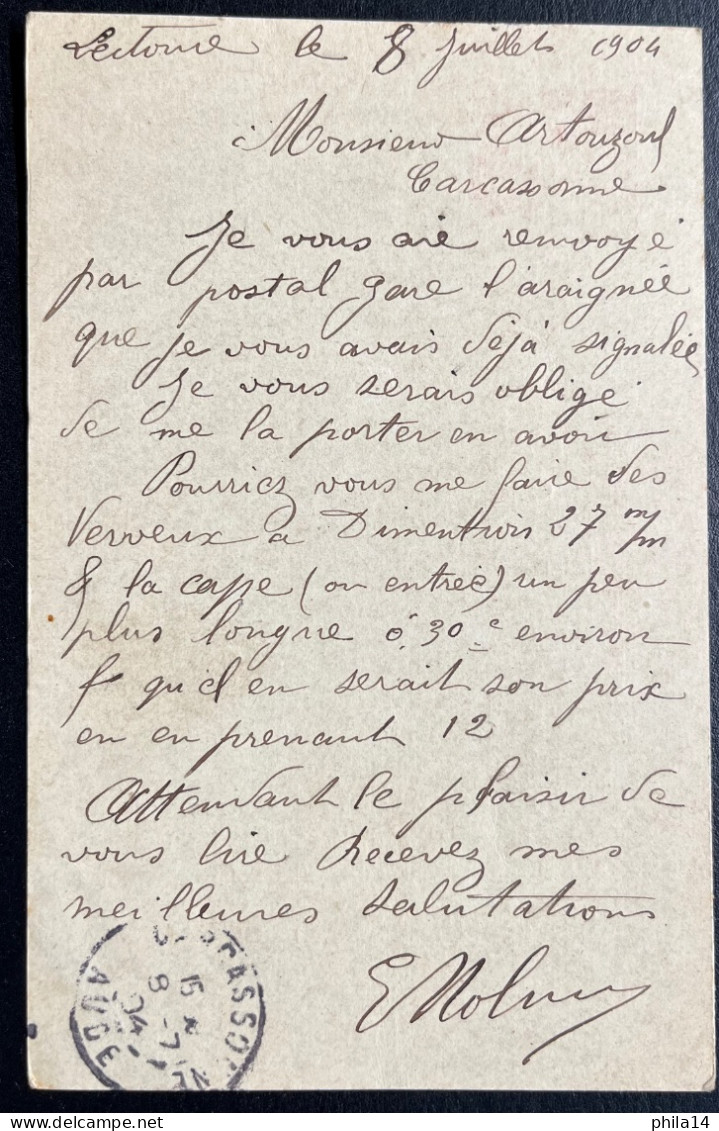 Lectoure le 8 Juillet 1904
Monsieur Artouzoul
Carcassonne
Je vous aie renvoyé
par postal gare l'araignée
que je vous avais déjà signalée
Je vous serais obligé
de me la porter en avoir
Pourriez vous me faire des
Verveux a Dimentions 27 m/m
& la cape (ou entrée) un peu
plus longue 0.30 c environ
& qu'el en serait son prix
en en prenant 12
Attendant le plaisir de
vous lire Recevez mes
meilleures salutations
CARCASSONNE
15
8 - 7
04
AUDE
phila14